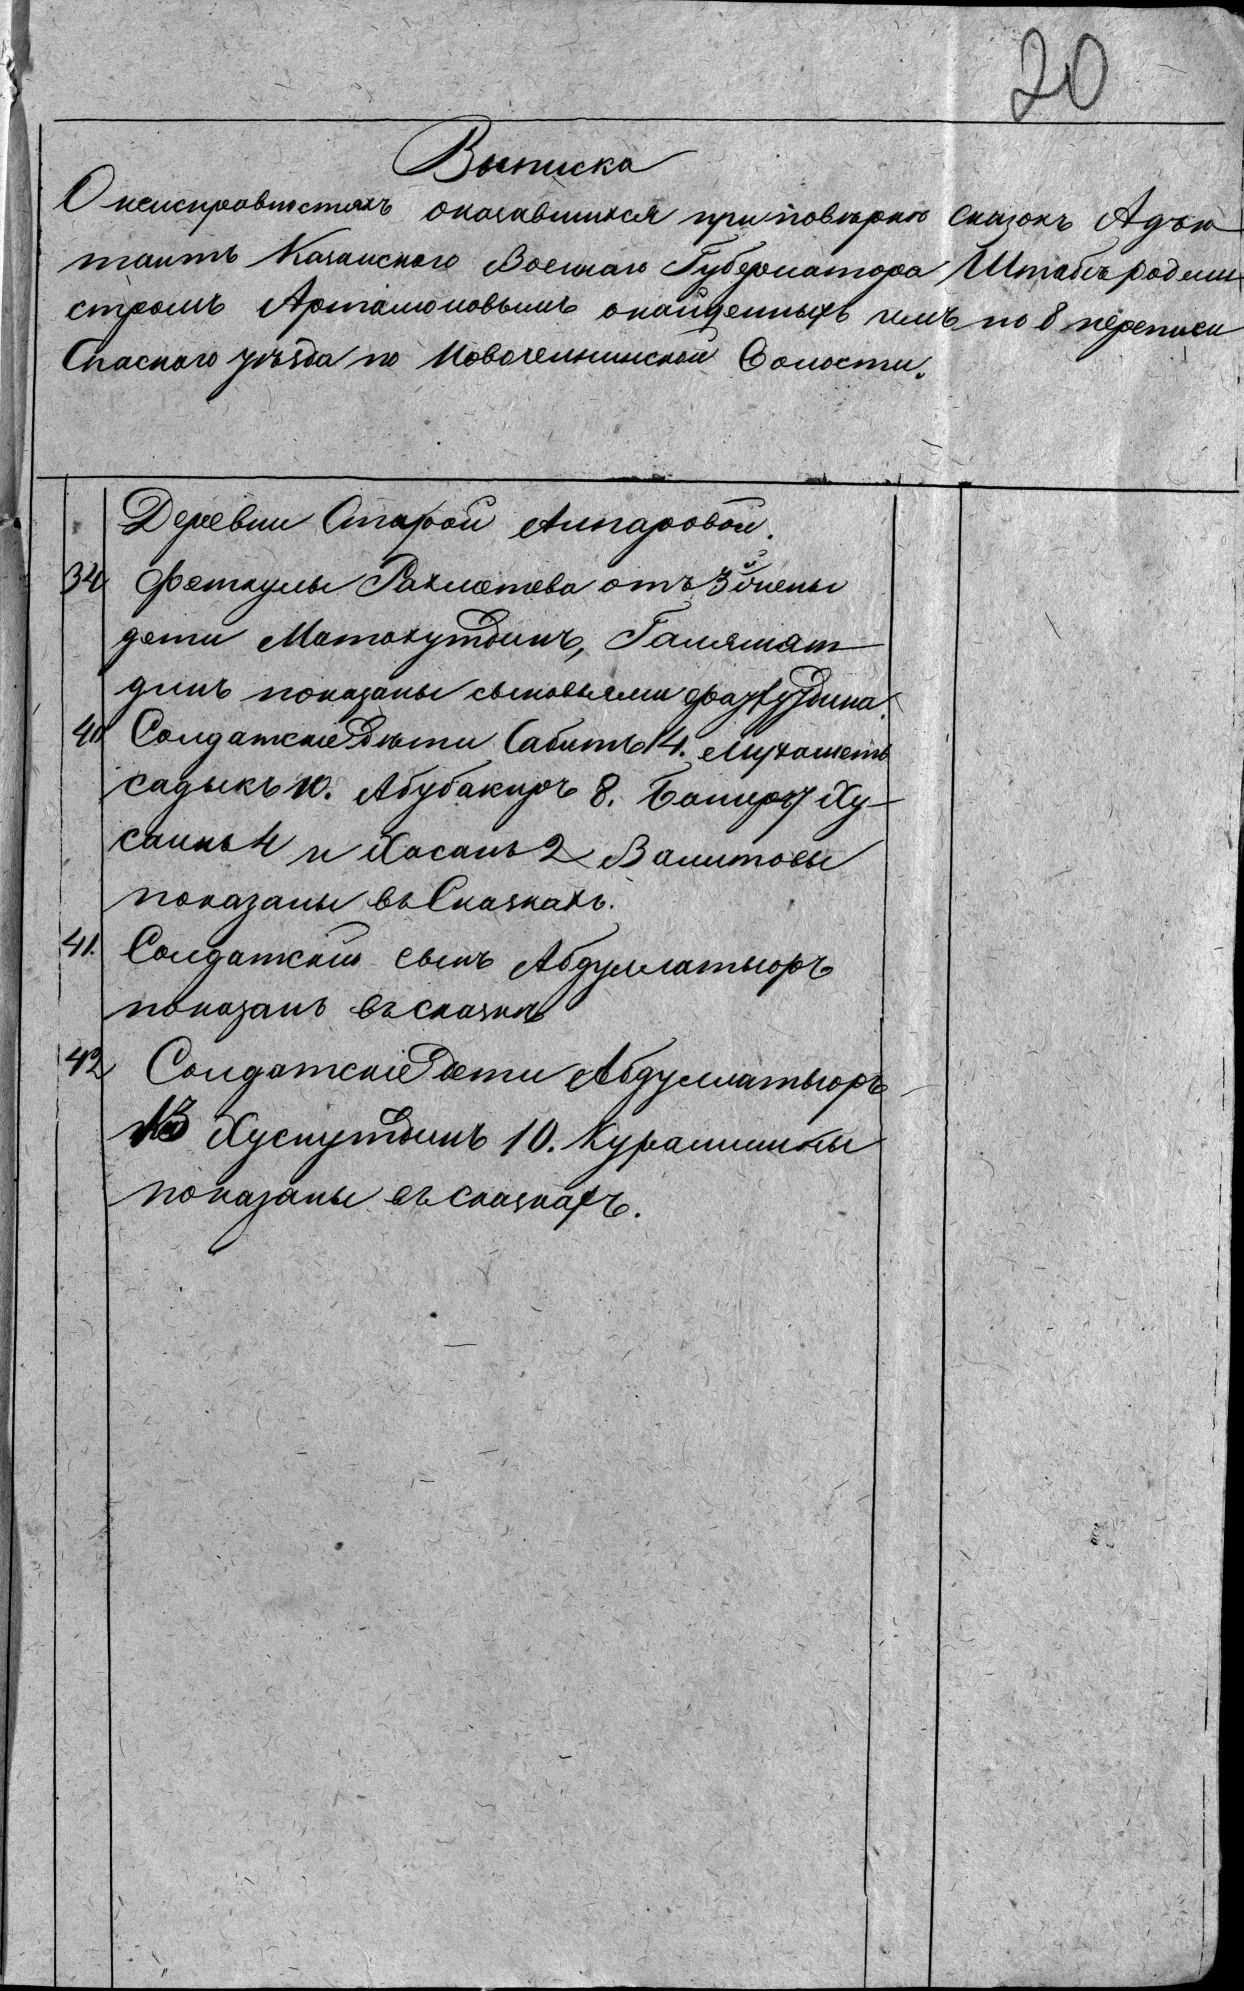 20
Выписка
О неисправностяхъ оказавшихся приповѣркѣ сказокъ Адъю
тантъ Казанского Военнаго Губернатора Штабъ родми
стромъ Артамоновымъ онайденныхъ имъ по 8 переписи
Спаскаго уѣзда по Новочелнинской Волости.
Деревни Старой Алпаровой.
34 Феткулы Рахметева отъ 3й жены
дети Матохутдинъ, Галямат
динъ показаны сыновьями
40 Солдатские дѣти Сабитъ 14. Мухаметъ
садыкъ 10. Абубакиръ 8. Бакиръ 7 Ху
саинъ 4 и Хасанъ 2 Валитовы
показаны въ Сказкахъ.
41. Солдаткой сынъ
показанъ въ сказкѣ
42 Солдатские Дѣти
13 Хуснутдинъ 10.
показаны въ сказкахъ.